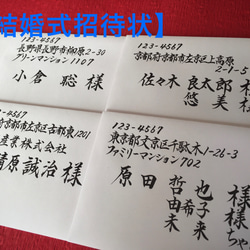 結婚式招待状】
123-4567
長野県長野市柳原2-30
アリーンマンション1107
小倉 聡 様
123-4567
京都府京都市左京区上高原
2-1-3
佐々木 良太郎 様
悠美 様
123-4567
京都市左京区古都東1201
産業株式会社
清原誠治様
123-4567
東京都文京区千駄木1-26-3
ファミリーマンション702
原田 哲也 様
希子 様
由来
未 ちゃ